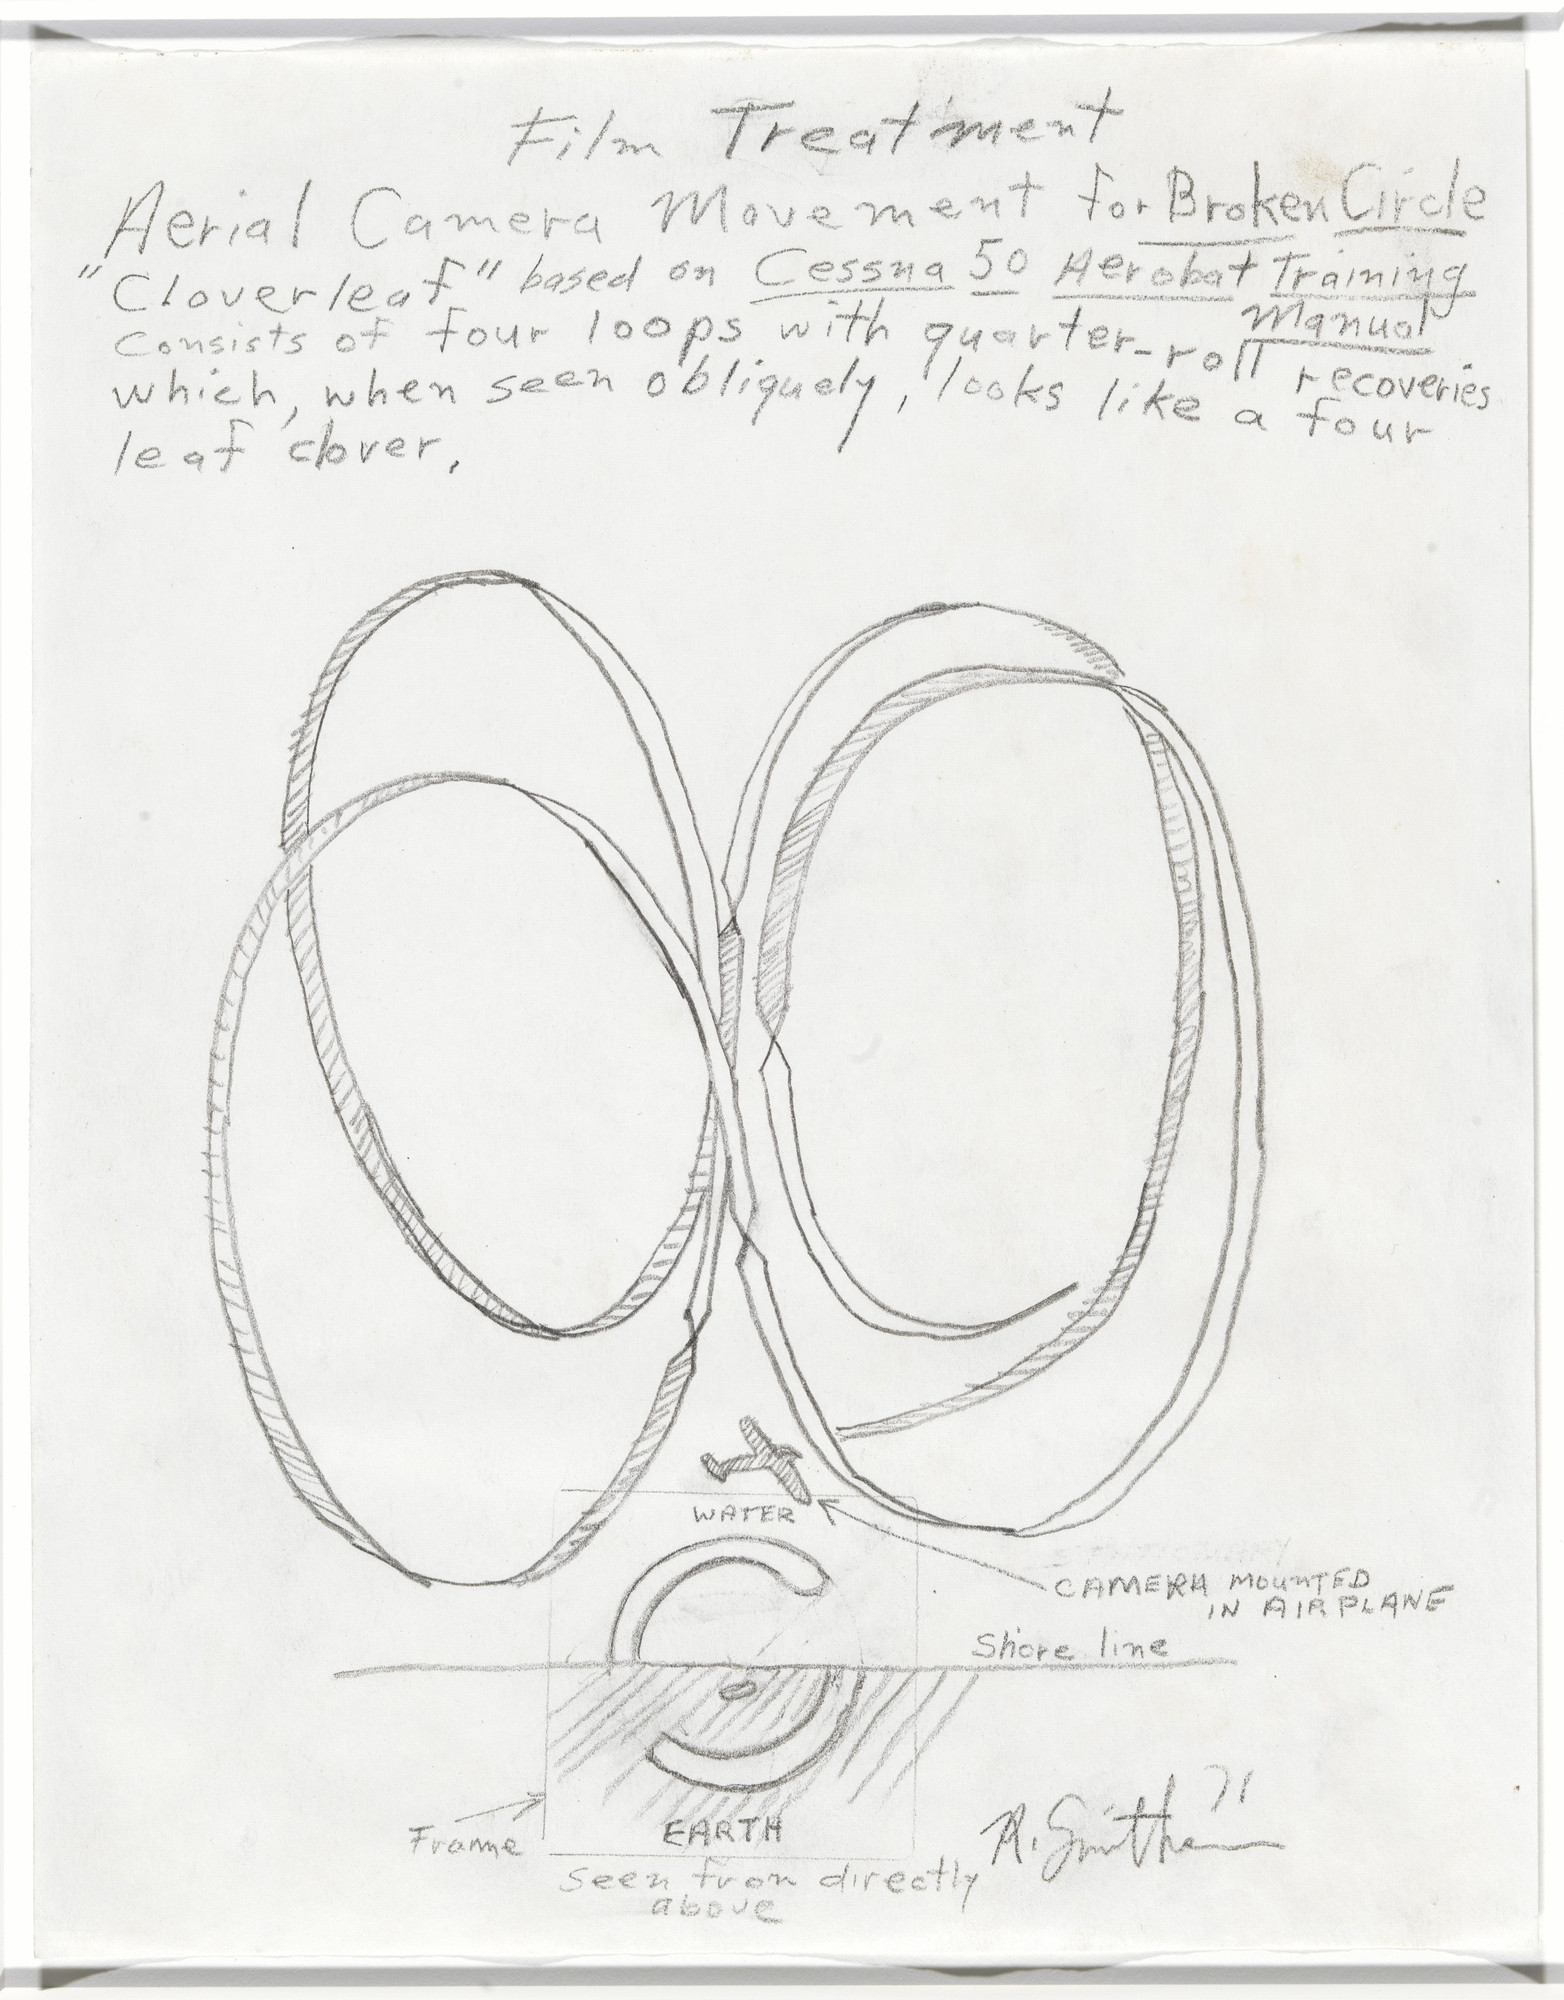 Film Treatment
Aerial Camera Movement for Broken Circle
"Cloverleaf" based on Cessna 50 Aerobat Training
Manual
consists of four loops with quarter-roll recoveries
which, when seen obliquely, looks like a four
leaf clover.
WATER
CAMERA MOUNTED
IN AIRPLANE
Shore line
R. Smithson 71
Frame
EARTH
seen from directly
above